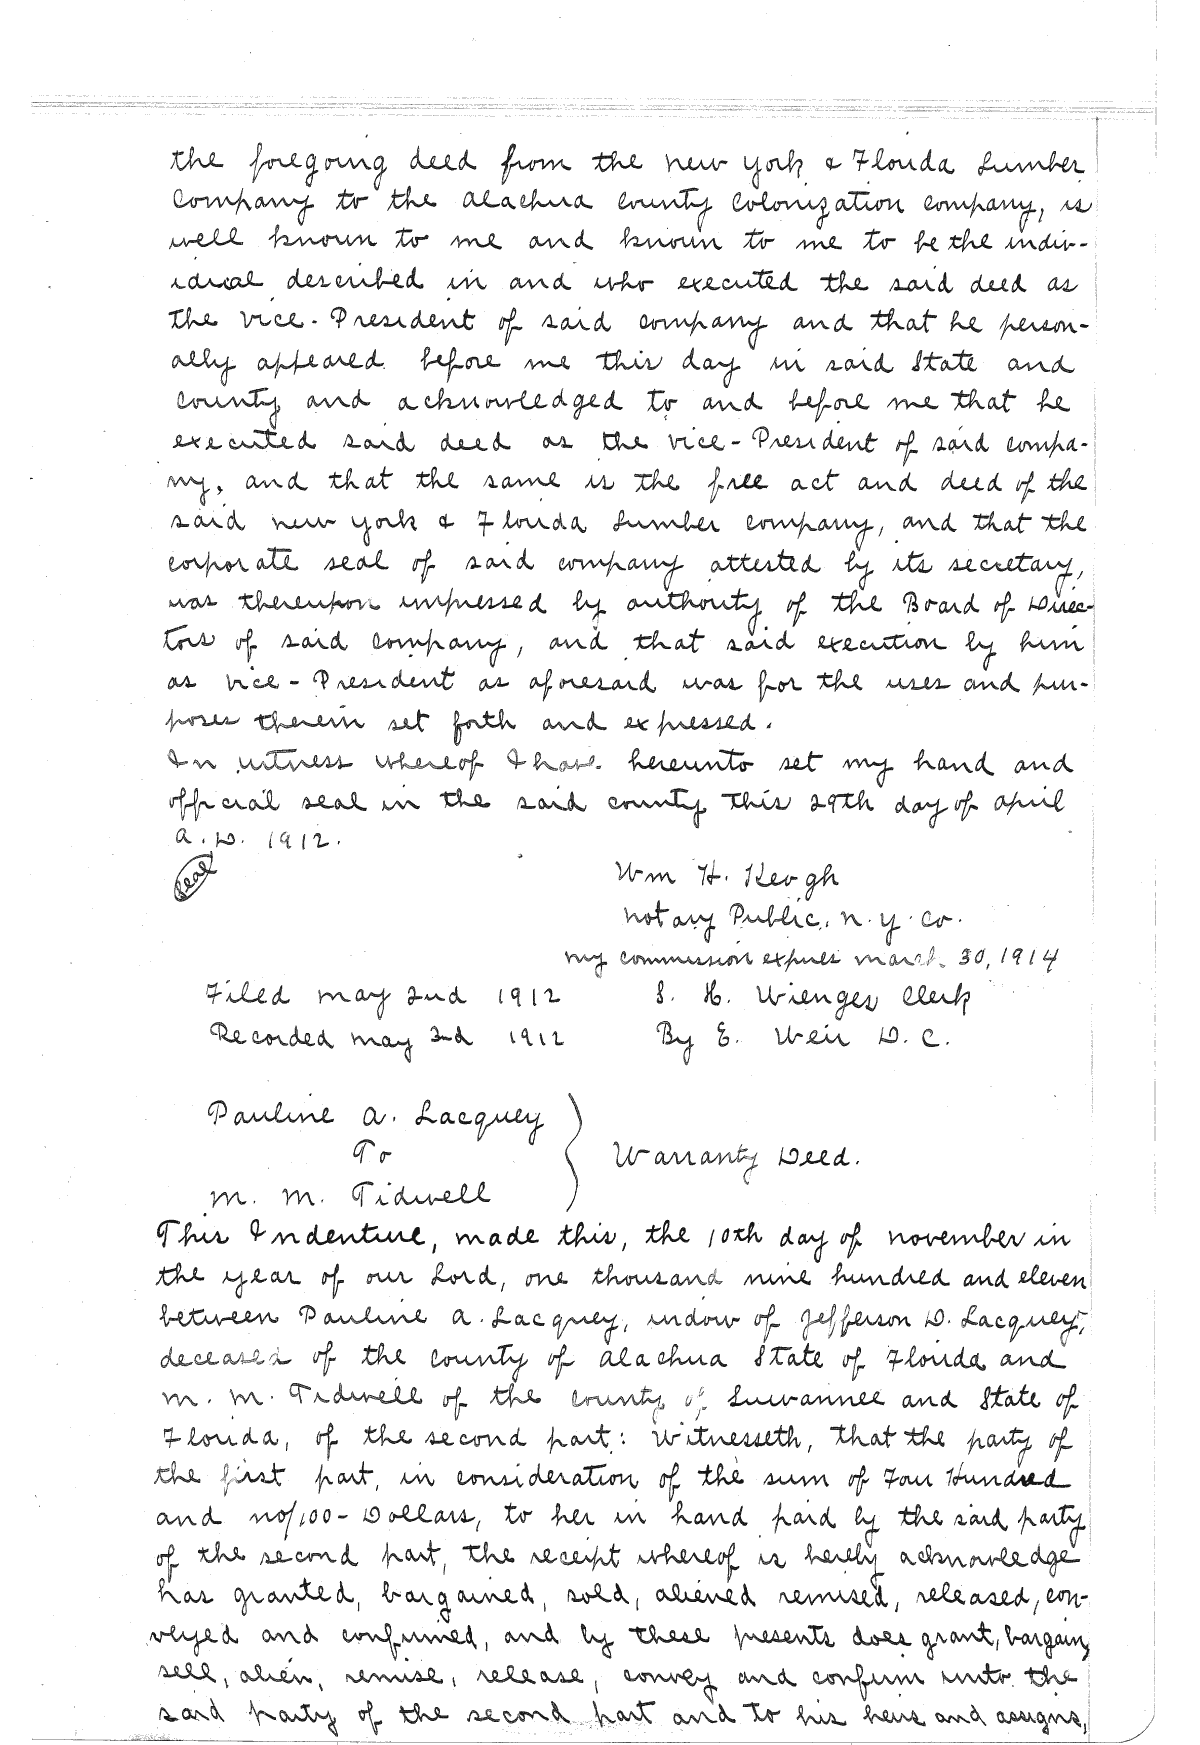 the foregoing deed from the New York & Florida Lumber
Company to the Alachua County Colonization Company, is
well known to me and known to me to be the indiv-
idual described in and who executed the said deed as
the vice-President of said company and that he person-
ally appeared before me this day in said State and
County and acknowledged to and before me that he
executed said deed as the vice-President of said compa-
ny, and that the same is the free act and deed of the
said New York & Florida Lumber Company, and that the
corporate seal of said company attested by its secretary,
was thereupon impressed by authority of the Board of Direc-
tors of said Company, and that said execution by him
as vice-President as aforesaid was for the uses and pur-
poses therein set forth and expressed.
In witness whereof I have hereunto set my hand and
official seal in the said county this 29th day of April
A.D. 1912.
Seal
Wm H. Keogh
Notary Public, N.Y. Co.
My commission expires March 30, 1914
Filed May 2nd 1912 S. H. Wienges Clerk
Recorded May 3rd 1912 By E. Weir D.C.
Pauline A. Lacquey
To
Warranty Deed.
M. M. Tidwell
This Indenture, made this, the 10th day of November in
the year of our Lord, one thousand nine hundred and eleven
between Pauline A. Lacquey, widow of Jefferson D. Lacquey,
deceased of the County of Alachua State of Florida and
M. M. Tidwell of the County of Suwannee and State of
Florida, of the second part: Witnesseth, that the party of
the first part, in consideration of the sum of Four Hundred
and no/100- Dollars, to her in hand paid by the said party
of the second part, the receipt whereof is hereby acknowledge
has granted, bargained, sold, aliened remised, released, con-
veyed and confirmed, and by these presents does grant, bargain,
sell, alien, remise, release, convey and confirm unto the
said party of the second part and to his heirs and assigns,